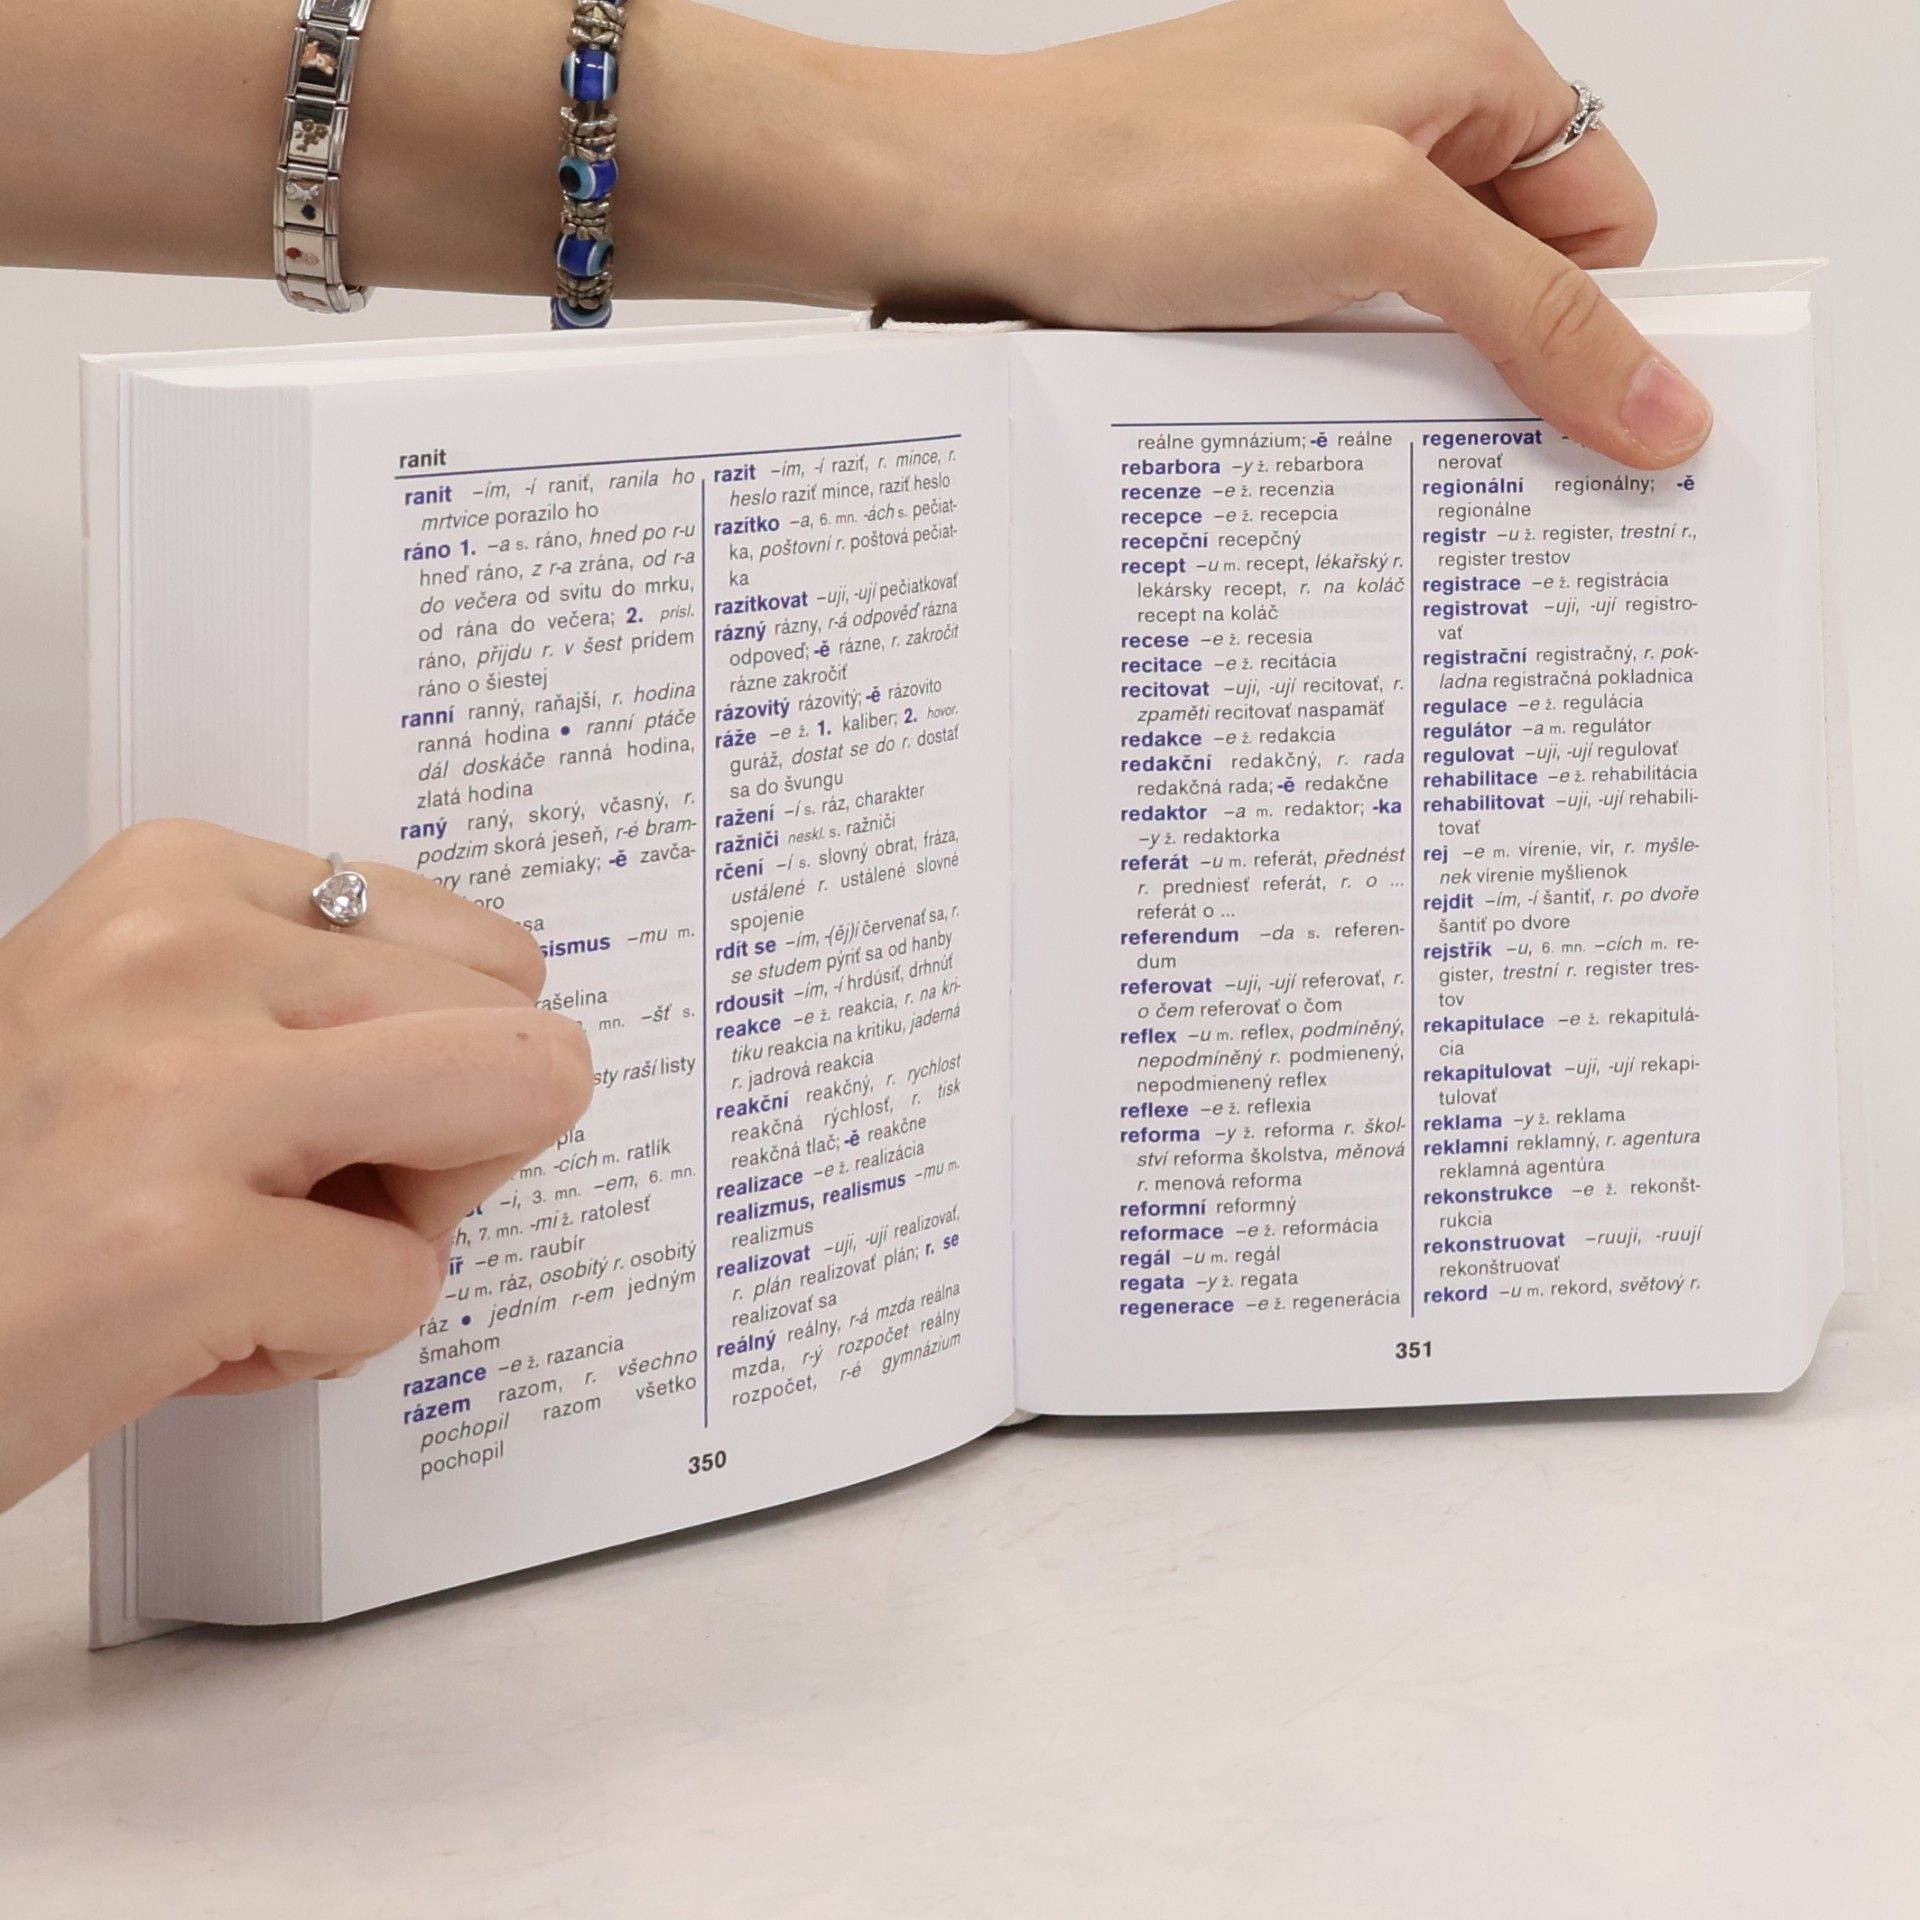 ranit
ranit –ím, -í raniť, ranila ho
mrtvice porazilo ho
ráno 1. –a s. ráno, hned po r-u
hneď ráno, z r-a zrána, od r-a
do večera od svitu do mrku,
od rána do večera; 2. prísl.
ráno, přijdu r. v šest prídem
ráno o šiestej
ranní ranný, raňajší, r. hodina
ranná hodina • ranní ptáče
dál doskáče ranná hodina,
zlatá hodina
raný raný, skorý, včasný, r.
podzim skorá jeseň, r-é bram-
rané zemiaky; -ě zavča-
–mu m.
mn. –šť s.
raší listy
mn. -cích m. ratlík
–i, 3. mn. –em, 6. mn.
7. mn. -mi ž. ratolesť
–e m. raubír
–u m. ráz, osobitý r. osobitý
ráz • jedním r-em jedným
šmahom
razance –e ž. razancia
rázem razom, r. všechno
pochopil razom všetko
pochopil
razit –ím, -í raziť, r. mince, r.
heslo raziť mince, raziť heslo
razítko –a, 6. mn. -ách s. pečiat-
ka, poštovní r. poštová pečiat-
ka
razítkovat –uji, -ují pečiatkovať
rázný rázny, r-á odpověď rázna
odpoveď; -ě rázne, r. zakročit
rázne zakročiť
rázovitý rázovitý; -ě rázovito
ráže –e ž. 1. kaliber; 2. hovor.
guráž, dostat se do r. dostať
sa do švungu
ražení –í s. ráz, charakter
ražniči neskl. s. ražniči
rčení –í s. slovný obrat, fráza,
ustálené r. ustálené slovné
spojenie
rdít se –ím, -(ěj)í červenať sa, r.
se studem pýriť sa od hanby
rdousit –ím, -í hrdúsiť, drhnúť
reakce –e ž. reakcia, r. na kri-
tiku reakcia na kritiku, jaderná
r. jadrová reakcia
reakční reakčný, r. rychlost
reakčná rýchlosť, r. tisk
reakčná tlač; -ě reakčne
realizace –e ž. realizácia
realizmus, realismus –mu m.
realizmus
realizovat –uji, -ují realizovať,
r. plán realizovať plán; r. se
realizovať sa
reálný reálny, r-á mzda reálna
mzda, r-ý rozpočet reálny
rozpočet, r-é gymnázium
350
reálne gymnázium; -ě reálne
rebarbora –y ž. rebarbora
recenze –e ž. recenzia
recepce –e ž. recepcia
recepční recepčný
recept –u m. recept, lékařský r.
lekársky recept, r. na koláč
recept na koláč
recese –e ž. recesia
recitace –e ž. recitácia
recitovat –uji, -ují recitovať, r.
zpaměti recitovať naspamäť
redakce –e ž. redakcia
redakční redakčný, r. rada
redakčná rada; -ě redakčne
redaktor –a m. redaktor; -ka
–y ž. redaktorka
referát –u m. referát, přednést
r. predniesť referát, r. o ...
referát o ...
referendum –da s. referen-
dum
referovat –uji, -ují referovať, r.
o čem referovať o čom
reflex –u m. reflex, podmíněný,
nepodmíněný r. podmienený,
nepodmienený reflex
reflexe –e ž. reflexia
reforma –y ž. reforma r. škol-
ství reforma školstva, měnová
r. menová reforma
reformní reformný
reformace –e ž. reformácia
regál –u m. regál
regata –y ž. regata
regenerace –e ž. regenerácia
regenerovat
nerovať
regionální regionálny; -ě
regionálne
registr –u ž. register, trestní r.,
register trestov
registrace –e ž. registrácia
registrovat –uji, -ují registro-
vať
registrační registračný, r. pok-
ladna registračná pokladnica
regulace –e ž. regulácia
regulátor –a m. regulátor
regulovat –uji, -ují regulovať
rehabilitace –e ž. rehabilitácia
rehabilitovat –uji, -ují rehabili-
tovať
rej –e m. vírenie, vír, r. myšle-
nek vírenie myšlienok
rejdit –ím, -í šantiť, r. po dvoře
šantiť po dvore
rejstřík –u, 6. mn. –cích m. re-
gister, trestní r. register tres-
tov
rekapitulace –e ž. rekapitulá-
cia
rekapitulovat –uji, -ují rekapi-
tulovať
reklama –y ž. reklama
reklamní reklamný, r. agentura
reklamná agentúra
rekonstrukce –e ž. rekonšt-
rukcia
rekonstruovat –ruuji, -ruují
rekonštruovať
rekord –u m. rekord, světový r.
351